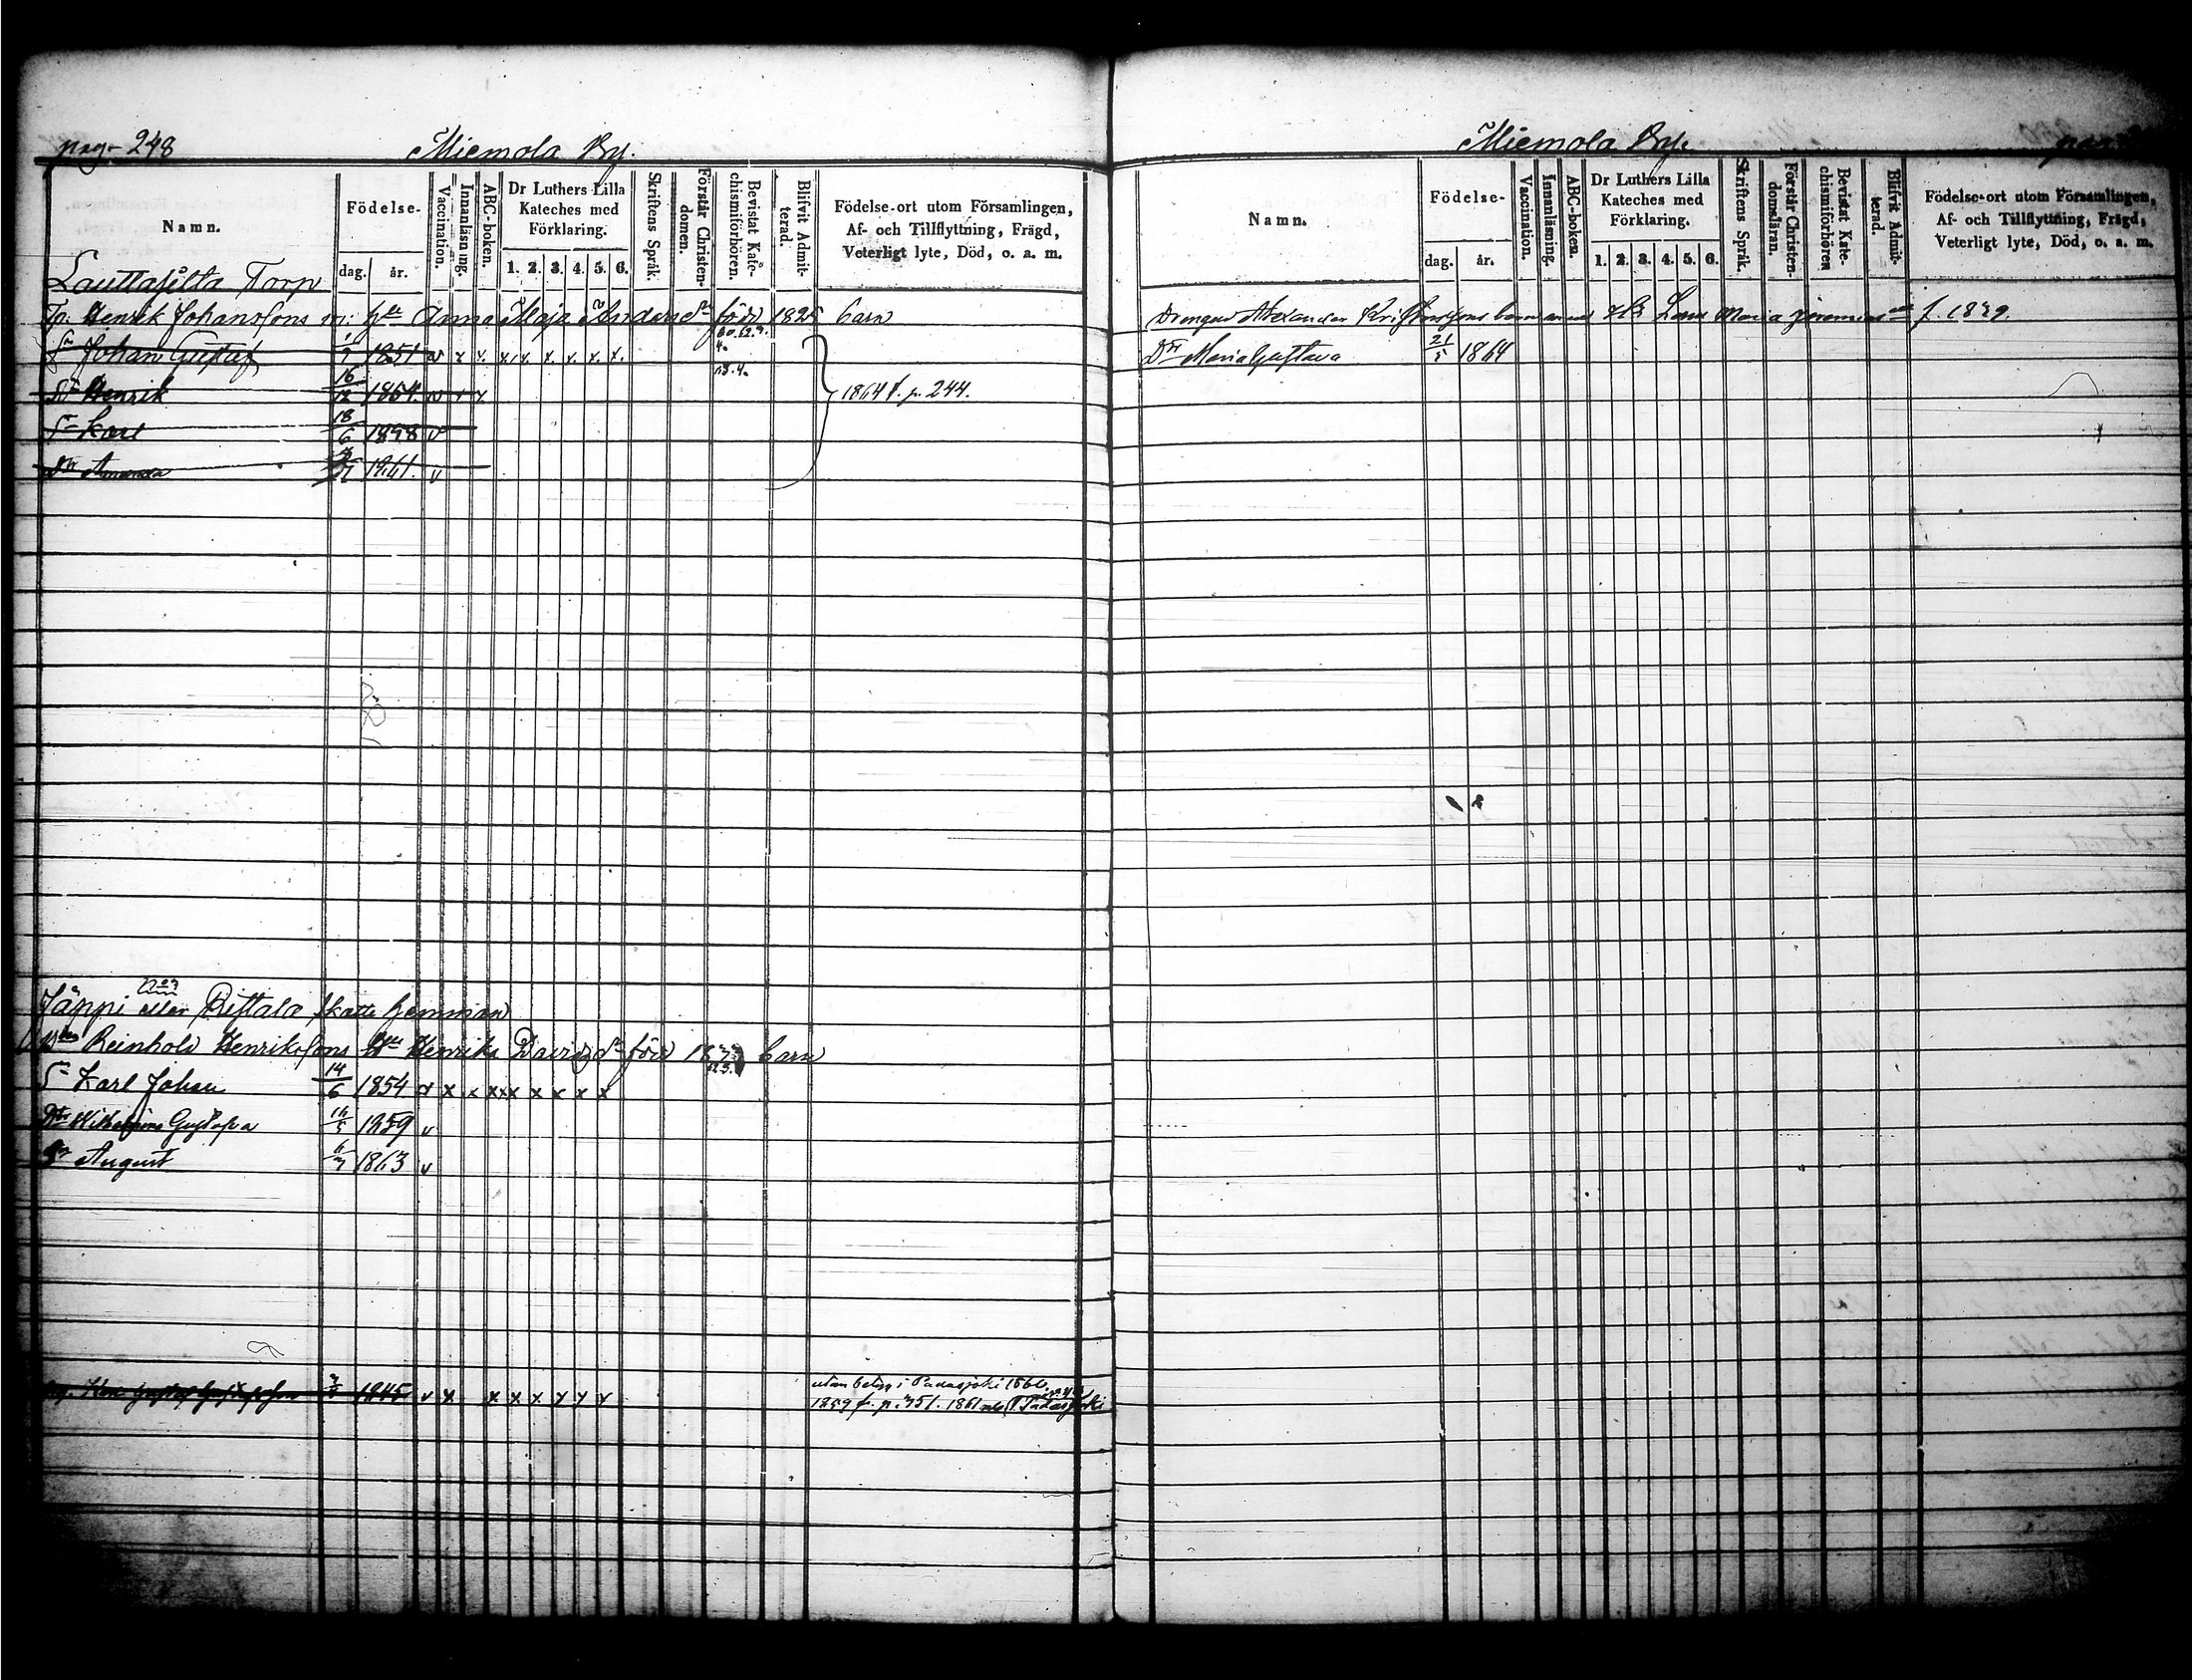 pag. 248
Miemola By.
Namn.
Födelse-
dag.
år.
Vaccination.
Innanläsning.
ABC-boken.
Dr Luthers Lilla Kateches med Förklaring.
1. 2. 3. 4. 5. 6.
Skriftens Språk.
Förstår Christen-domen.
Bevistat Kate-chismiförhören.
Blifvit Admit-terad.
Födelse-ort utom Församlingen,
Af- och Tillflyttning, Frägd,
Veterligt lyte, Död, o. a. m.
Torp
Henrik Johanssons Anna Maja född 1825 barn
Sn Johan Gustaf 1851 v x x x x x x x x
Sn Henrik 16/12 1854 v x x 1864 f. p. 244.
Sn Karl 18/6 v
Dr Amanda 1861. v
Jäppi eller Ristala skatte hemman
Reinhold Henrikssons född barn
Sn Karl Johan 14/6 1854 v x x x x x x x x x
Dtr Wilhelmina Gustafva 16/5 1859 v
Sn August 6/7 1863 v
1845 v x x x x x x x
utan betyg i Padasjoki
1859 f. p. 751. 1861 Padasjoki
Miemola By.
Namn.
Födelse-
dag.
år.
Vaccination.
Innanläsning.
ABC-boken.
Dr Luthers Lilla Kateches med Förklaring.
1. 2. 3. 4. 5. 6.
Skriftens Språk.
Förstår Christen-domsläran.
Bevistat Kate-chismiförhören
Blifvit Admit-terad.
Födelse-ort utom Församlingen,
Af- och Tillflyttning, Frägd,
Veterligt lyte, Död, o. a. m.
Drengen Alexander Maria f. 1839.
Dtr Maria Gustava 21/5 1864